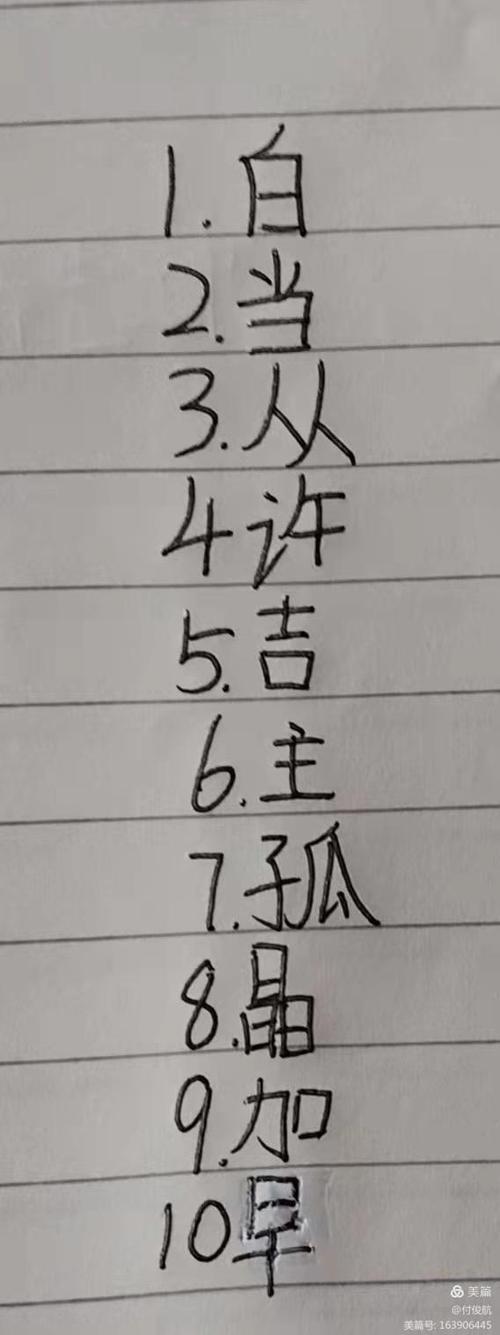 1. 白
2. 当
3. 从
4 许
5. 吉
6. 主
7. 孤
8. 晶
9. 加
10 早
美篇
@付俊航
美篇号: 163906445